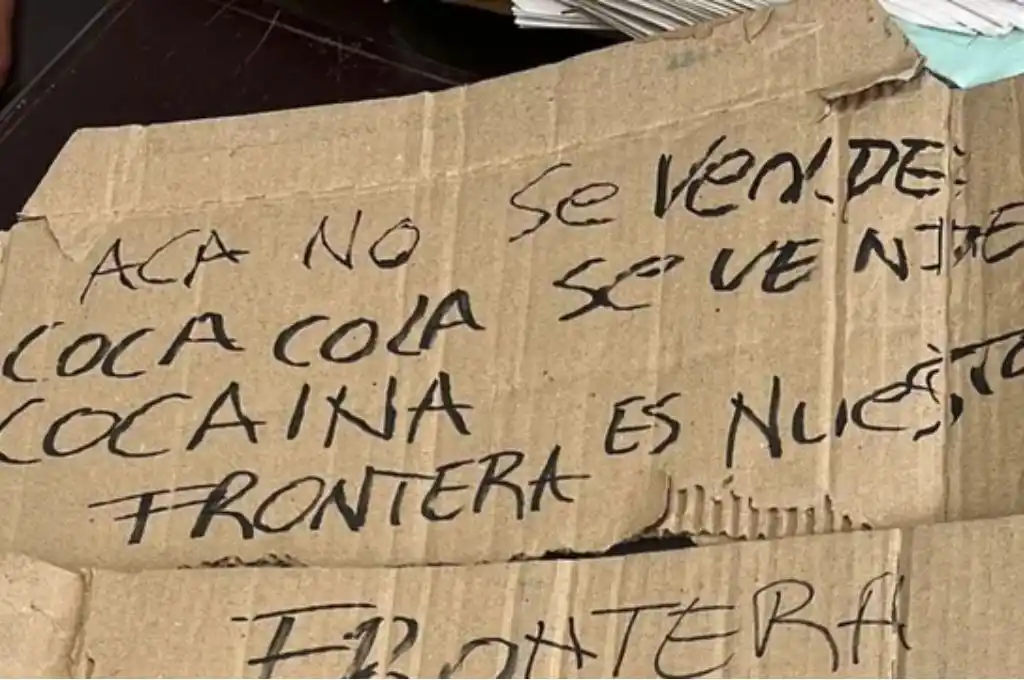 ACA NO SE VENDE:
COCA COLA SE VENDE
COCAINA ES NUESTO
FRONTERA
FRONTERA